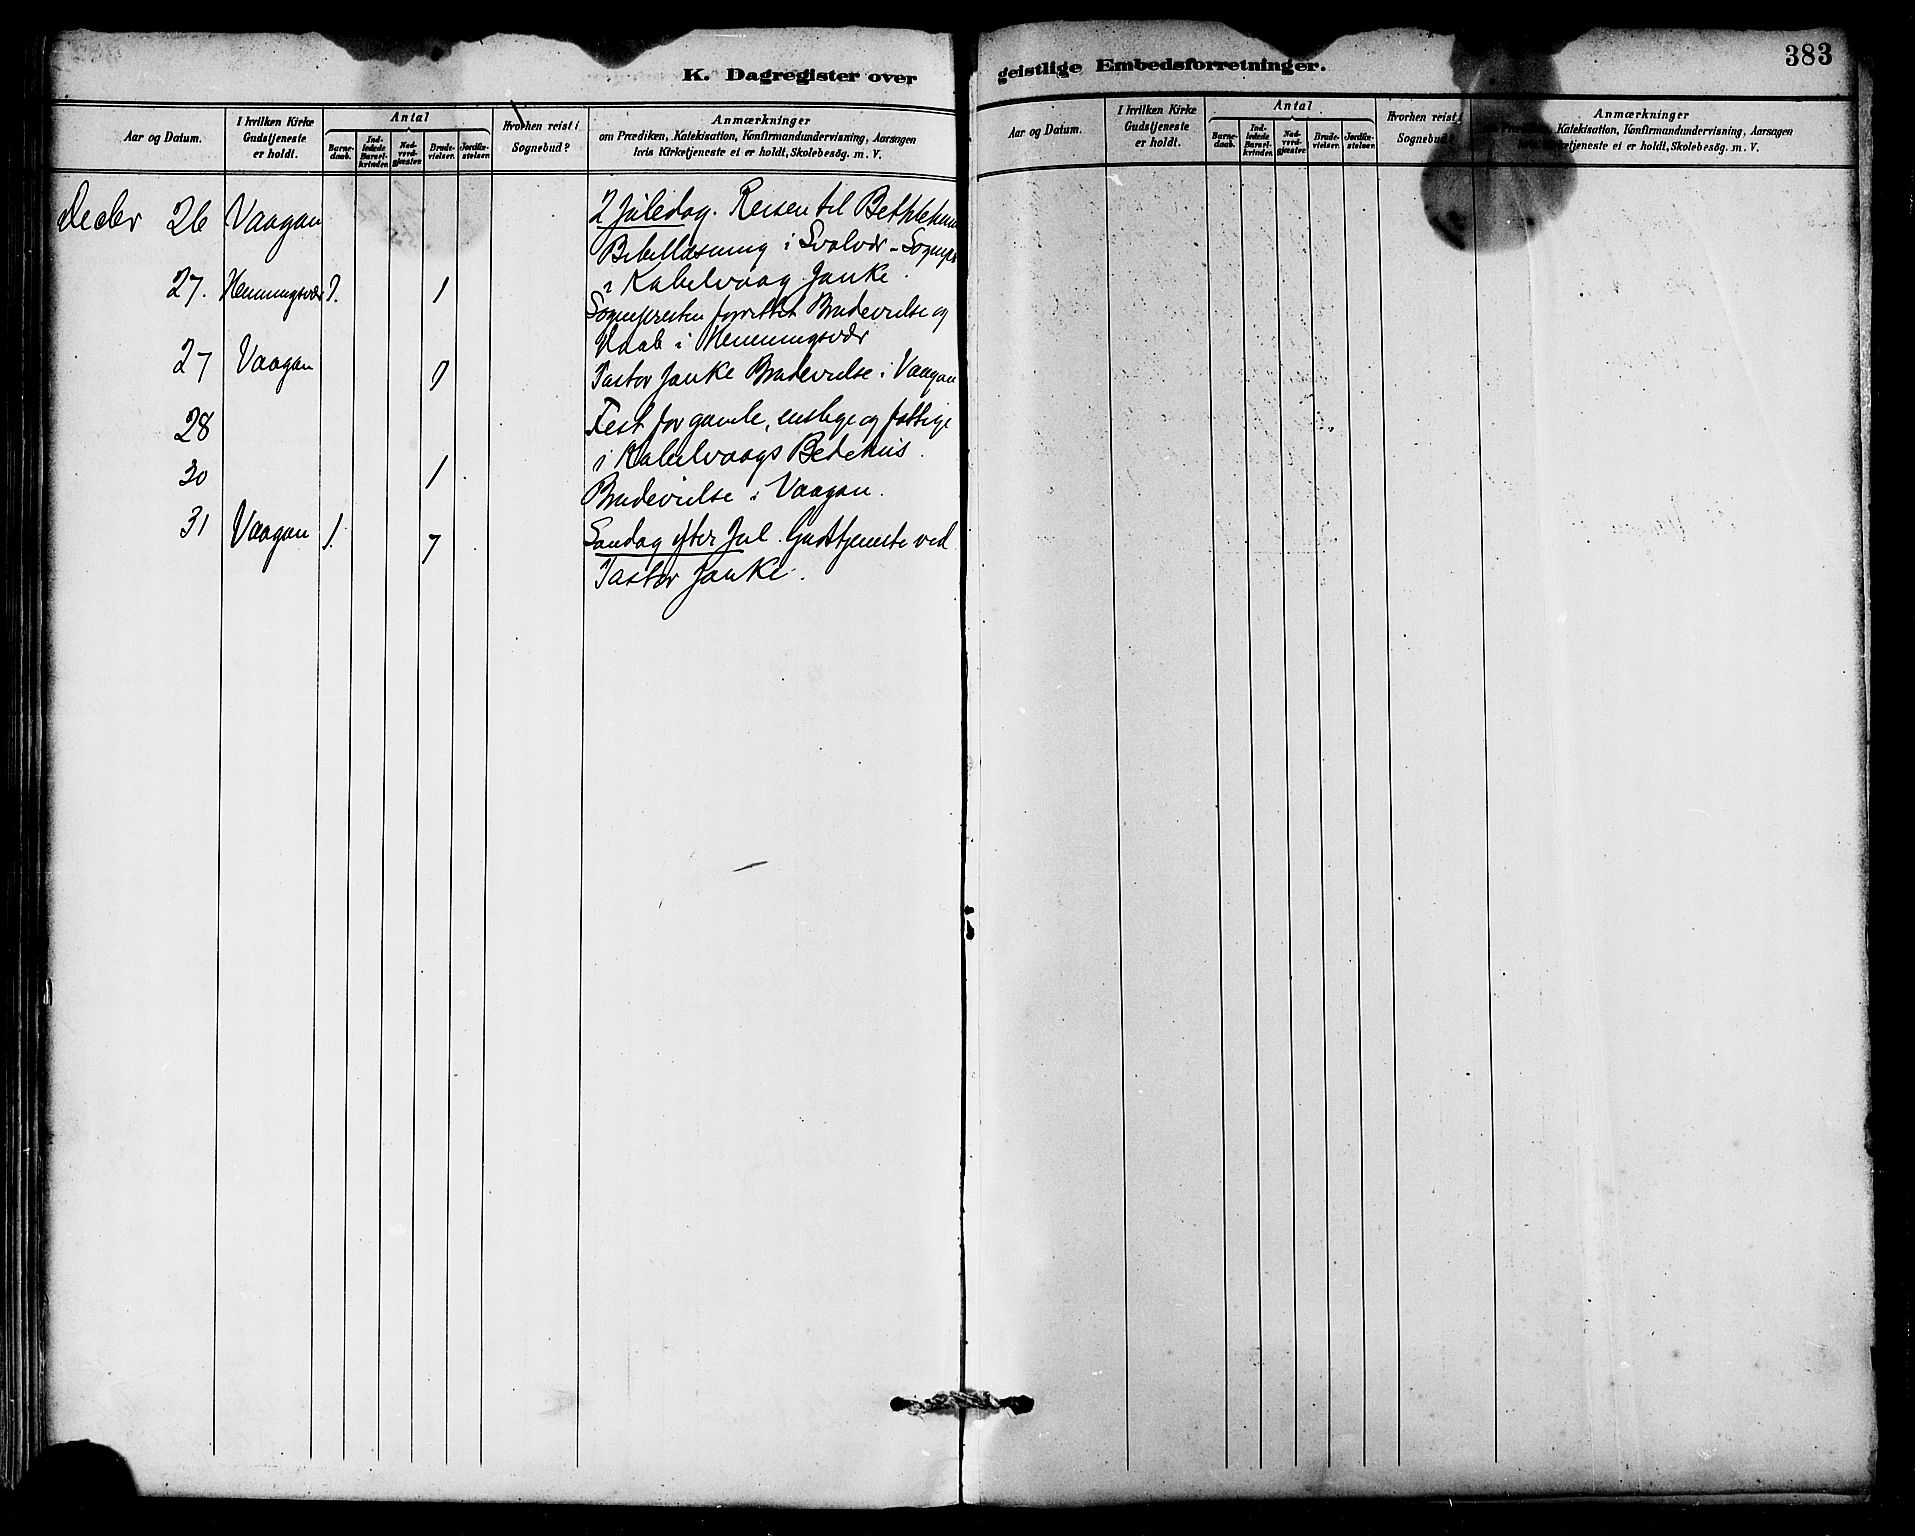 K. Dagregister over
geistlige Embedsforretninger.
383
Aar og Datum.
I hvilken Kirke Gudstjeneste er holdt.
Antal
Barnedaab.
Indledede Barselkvinder.
Nadverdgjæster.
Brudevielser.
Jordfæstelser.
Hvorhen reist i Sognebud?
Anmærkninger
om Prædiken, Katekisation, Konfirmandundervisning, Aarsagen
hvis Kirketjeneste ei er holdt, Skolebesøg. m. V.
Decbr 26 Vaagan 2 Juledag. Reisen til Bethlehem
Bibellæsning i Svolvær - Sognepr
i Kabelvaag Janke.
27. Henningsvær 7. 1
Sognepresten forrettet Brudevielse og
Daab i Henningsvær
27 Vaagan 7 Pastor Janke Brudevielse i Vaagan
28 Fest for gamle, enslige og fattige
i Kabelvaags Bedehus.
30 1 Brudevielse i Vaagan.
31 Vaagan 1. 7 Søndag efter Jul. Gudstjeneste ved
Pastor Janke.
Aar og Datum.
I hvilken Kirke Gudstjeneste er holdt.
Antal
Barnedaab.
Indledede Barselkvinder.
Nadverdgjæster.
Brudevielser.
Jordfæstelser.
Hvorhen reist i Sognebud?
Anmærkninger
Katekisation, Konfirmandundervisning, Aarsagen
ei er holdt, Skolebesøg. m. V.